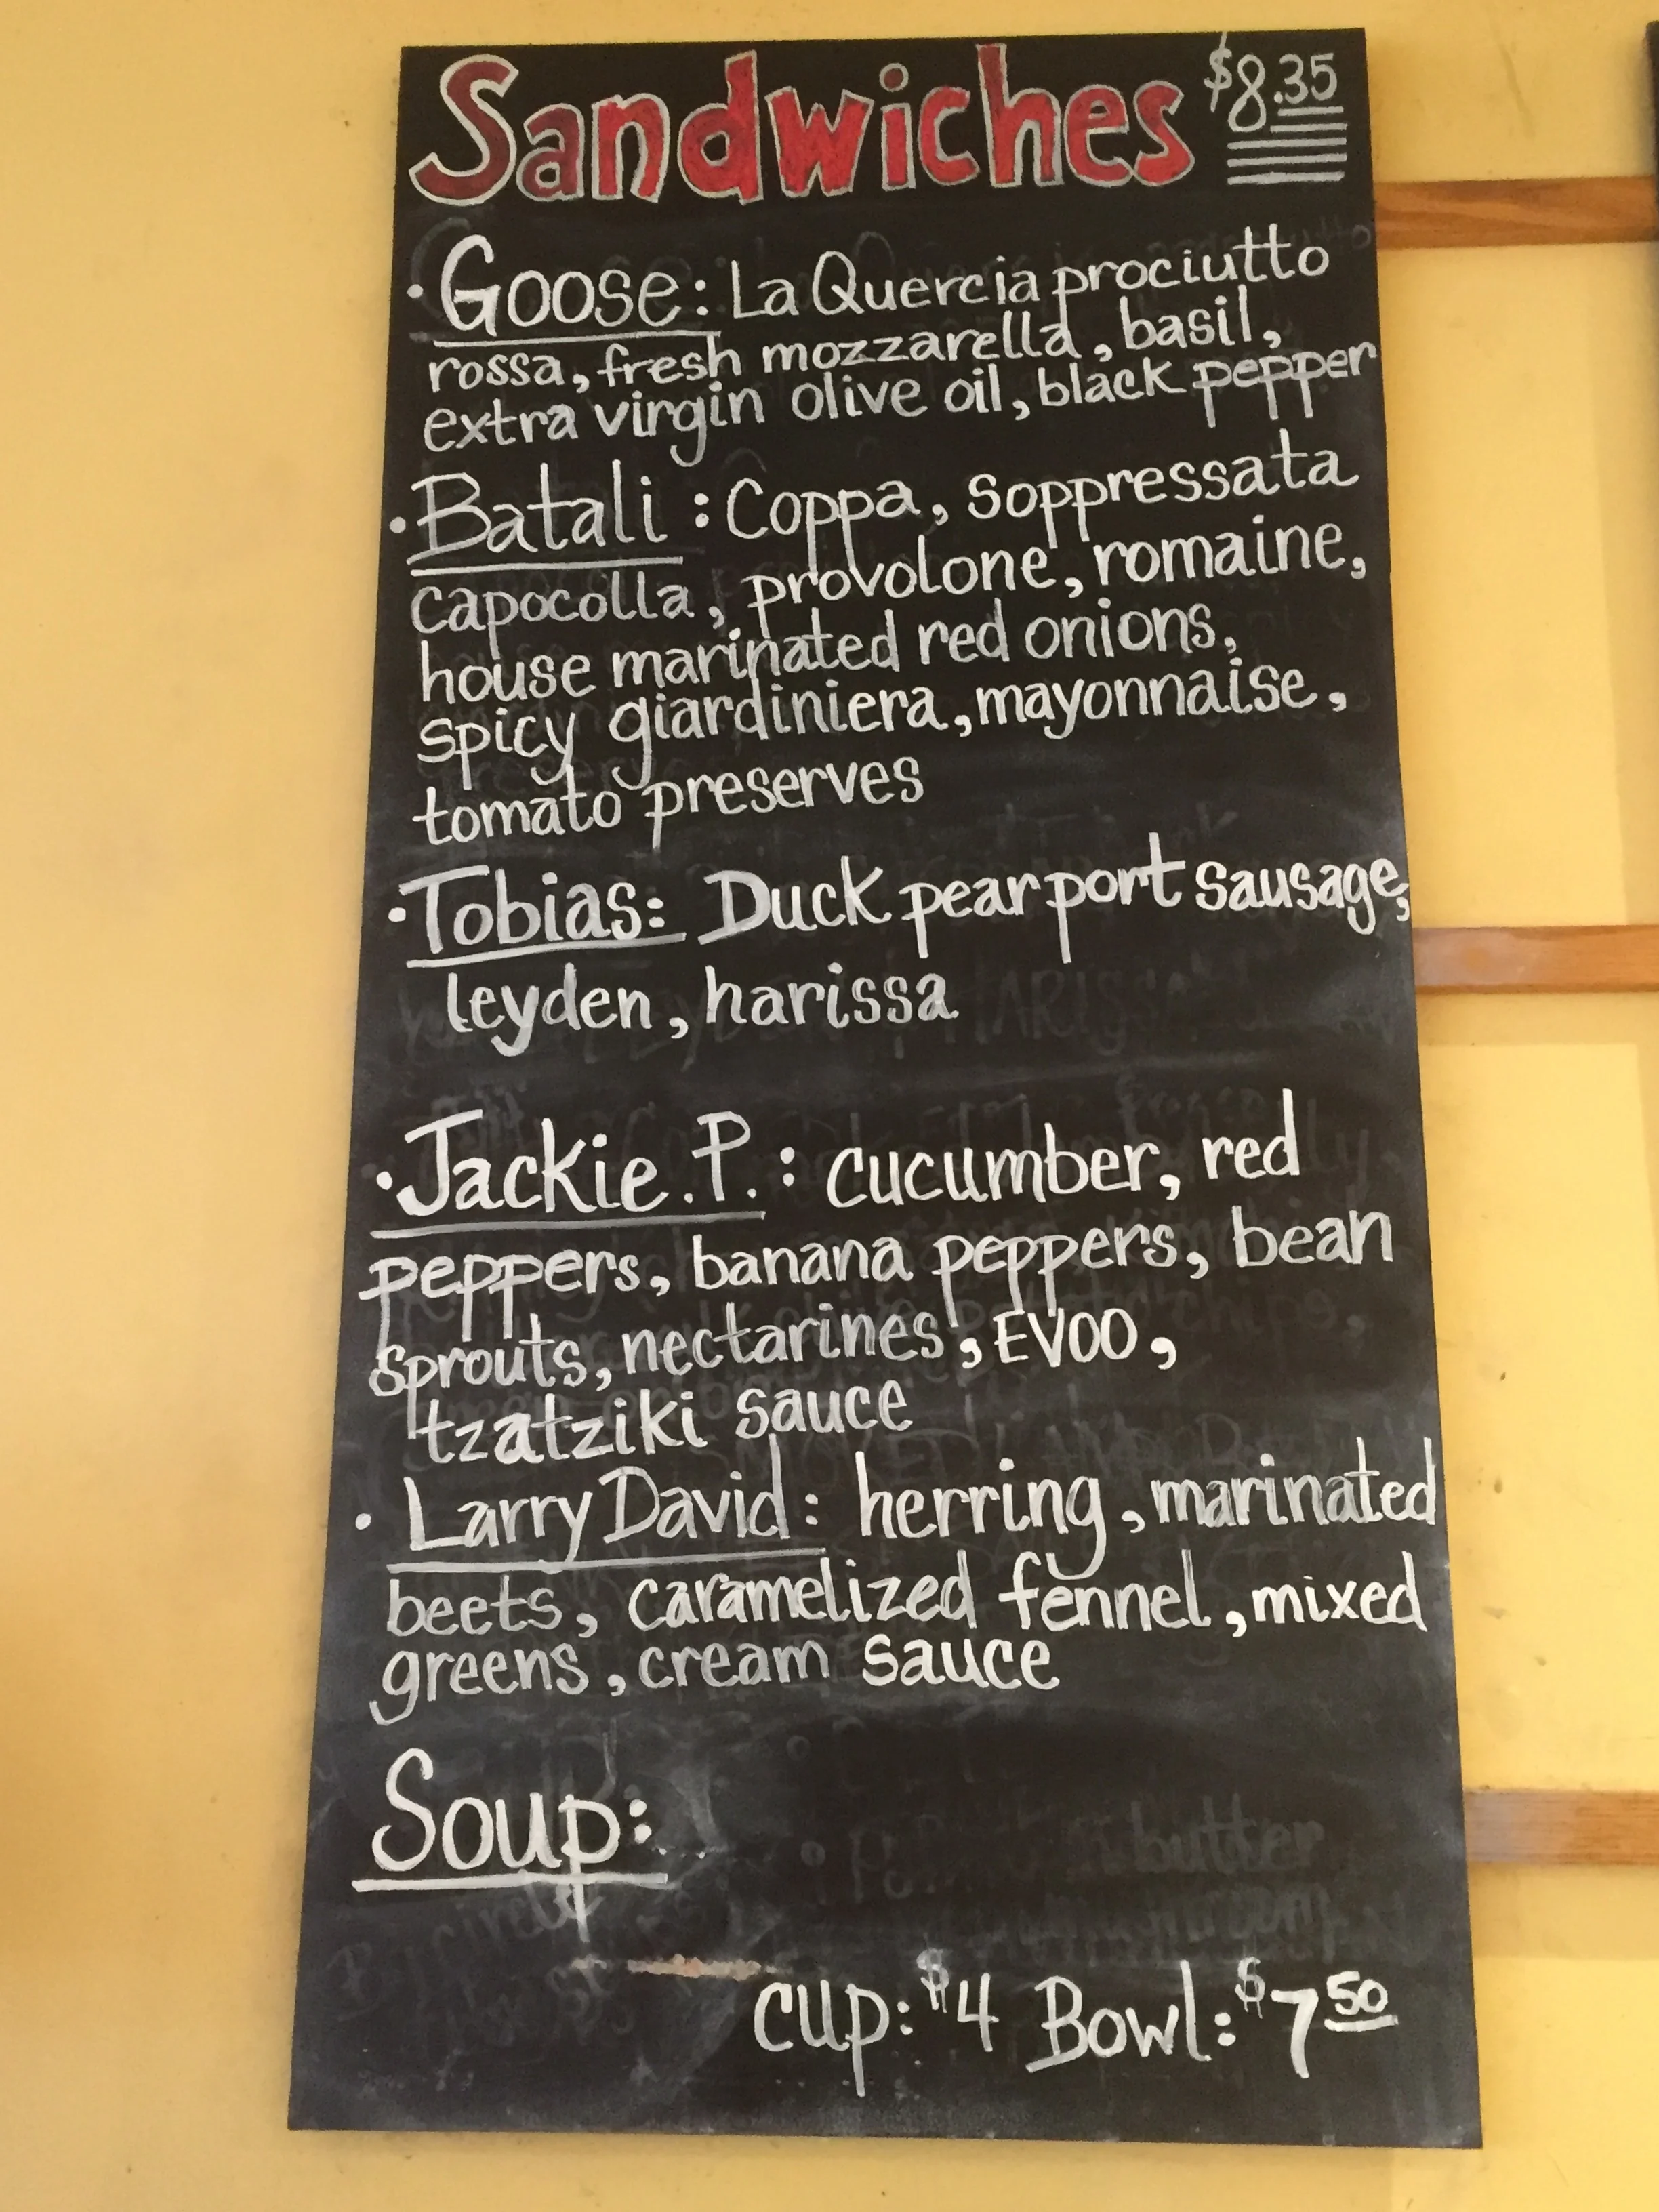 Sandwiches $8.35
• Goose: La Quercia prociutto
rossa, fresh mozzarella, basil,
extra virgin olive oil, black pepper
• Batali : Coppa, Soppressata
capocolla, provolone, romaine,
house marinated red onions,
spicy giardiniera, mayonnaise,
tomato preserves
• Tobias: Duck pear port sausage,
leyden, harissa
• Jackie. P. : cucumber, red
peppers, banana peppers, bean
sprouts, nectarines, EVOO,
tzatziki sauce
• Larry David: herring, marinated
beets, caramelized fennel, mixed
greens, cream sauce
Soup:
cup: $4 Bowl: $7 50